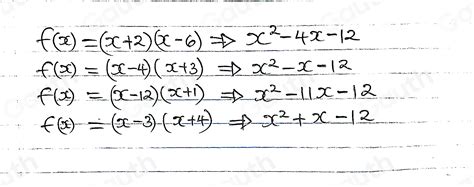 f(x) = (x+2)(x-6) ⇒ x² - 4x - 12
f(x) = (x-4)(x+3) ⇒ x² - x - 12
f(x) = (x-12)(x+1) ⇒ x² - 11x - 12
f(x) = (x-3)(x+4) ⇒ x² + x - 12